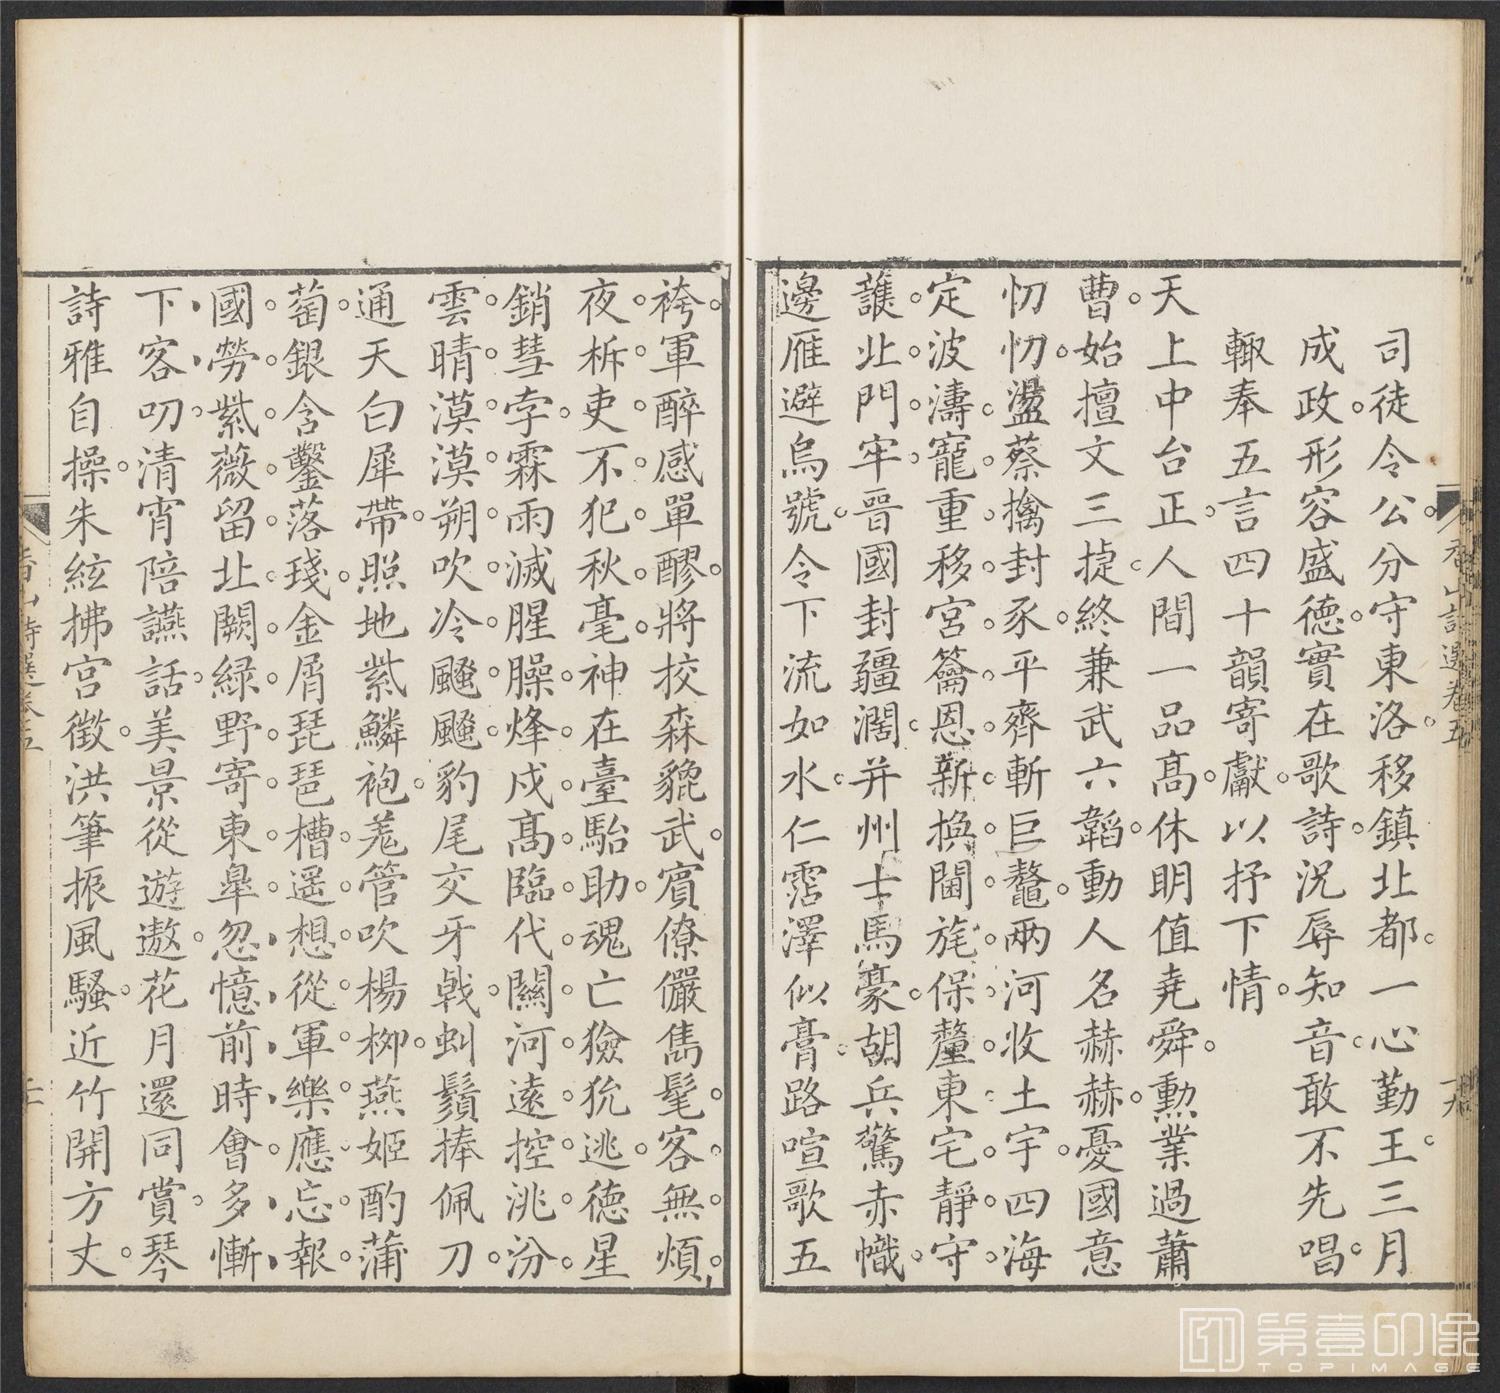 司徒令公分守東洛移鎮北都一心勤王三月
成政形容盛德實在歌詩況辱知音敢不先唱
輙奉五言四十韻寄獻以抒下情
天上中台正人間一品高休明值堯舜勲業過蕭
曹始擅文三捷終兼武六韜動人名赫赫憂國意
忉忉盪蔡擒封豕平齊斬巨鼇兩河收土宇四海
定波濤寵重移宮籥恩新換閫旄保釐東宅靜守
護北門牢晉國封疆濶并州士馬豪胡兵驚赤幟
邊雁避烏號令下流如水仁霑澤似膏路喧歌五
袴軍醉感單醪將校森貔武賓僚儼雋髦客無煩
夜柝吏不犯秋毫神在臺駘助魂亡獫狁逃德星
銷彗孛霖雨滅腥臊烽戍高臨代關河遠控洮汾
雲晴漠漠朔吹冷颼颼豹尾交牙戟虯鬚捧佩刀
通天白犀帶照地紫鱗袍羗管吹楊柳燕姬酌蒲
萄銀含鑿落琖金屑琵琶槽遥想從軍樂應忘報
國勞紫薇留北闕緑野寄東皐忽憶前時會多慚
下客叨清宵陪讌話美景從遊遨花月還同賞琴
詩雅自操朱絃拂宮徵洪筆振風騷近竹開方丈
香山詩選卷五
十九
香山詩選卷五
二十
第壹印像
TOPIMAGE